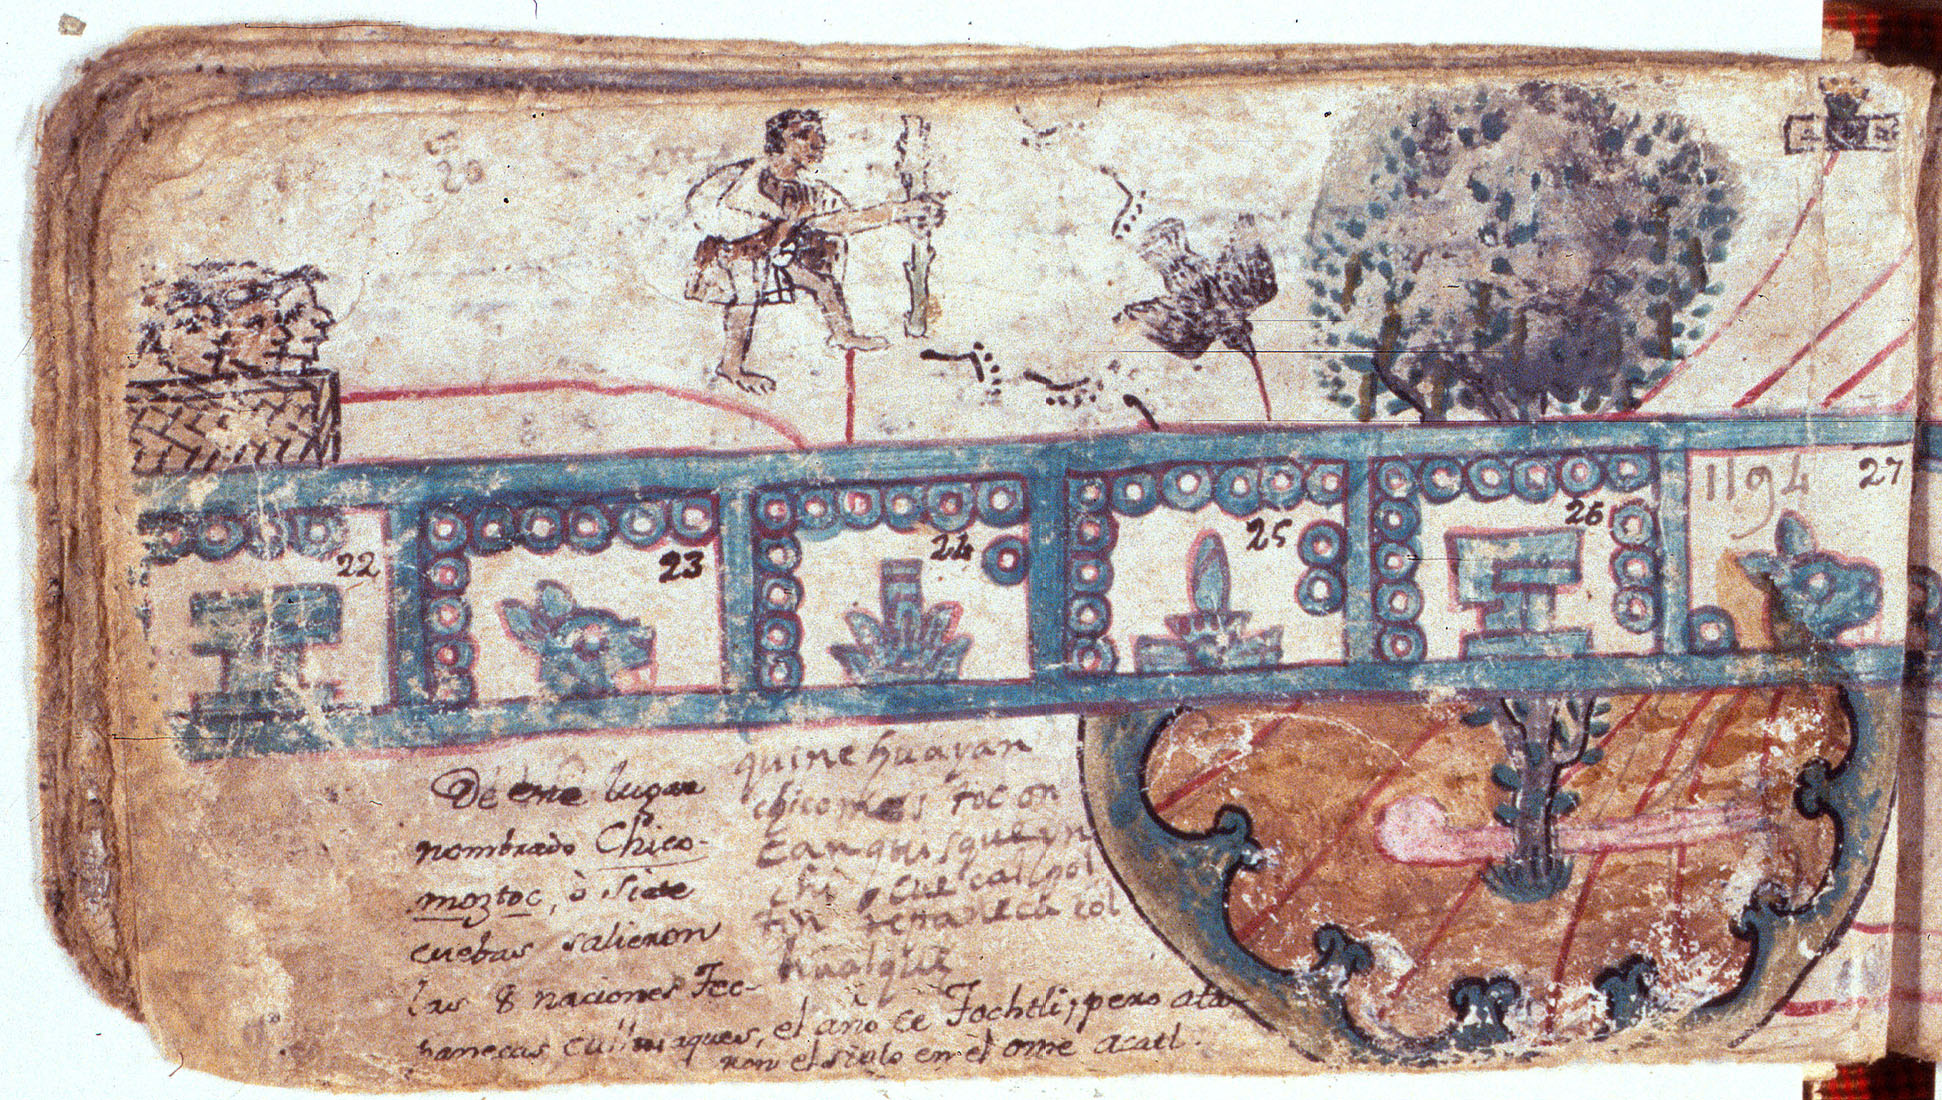 20
22
23
24
25
26
1194
27
De este lugar
nombrado Chico-
moztoc, ò siete
cuebas salieron
las 8 naciones Tec-
panecas culhuaques, el año ce Tochtli, pero ata-
ron el siglo en el ome acatl.
quinehuayan
chicomos toc on
can quisque yn
hualque